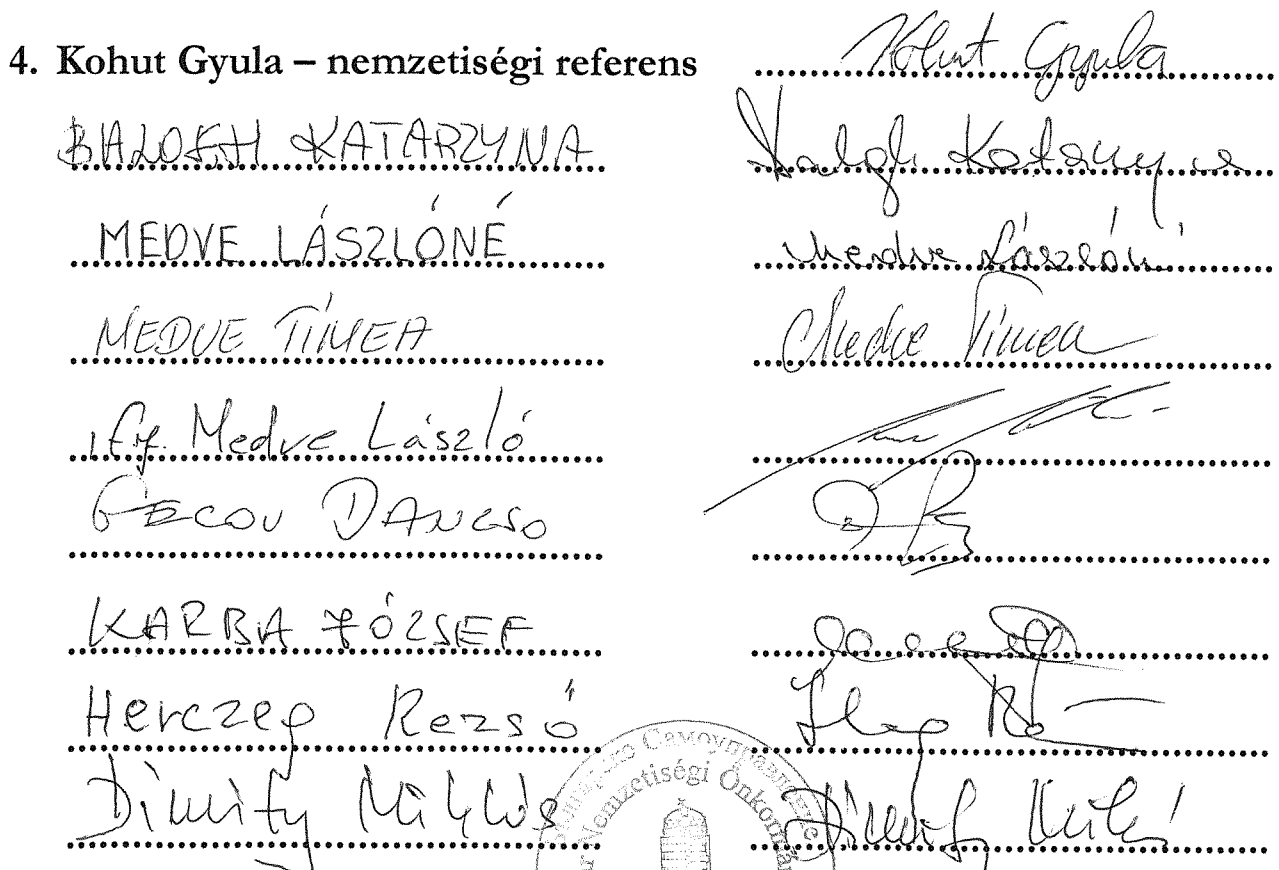 4. Kohut Gyula – nemzetiségi referens Kohut Gyula
BALOGH KATARZYNA Balogh Katarzyna
MEDVE LÁSZLÓNÉ Medve Lászlóné
MEDVE TÍMEA Medve Tímea
ifj. Medve László
GECOV DANCSO
KARBA JÓZSEF
Herczeg Rezső
Dimity Miklós Dimity Miklós
Самоуправление
Nemzetiségi Önkormán